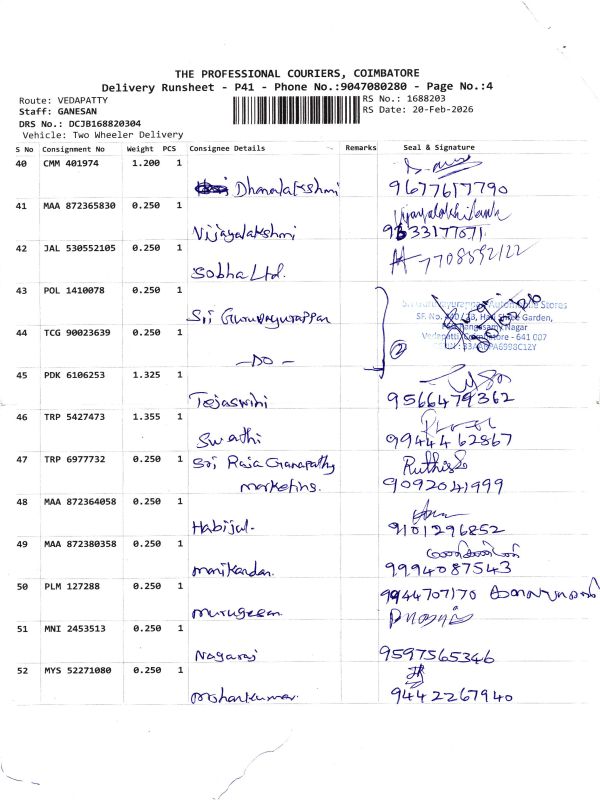 THE PROFESSIONAL COURIERS, COIMBATORE
Delivery Runsheet - P41 - Phone No.:9047080280 - Page No.:4
Route: VEDAPATTY
RS No.: 1688203
Staff: GANESAN
RS Date: 20-Feb-2026
DRS No.: DCJB168820304
Vehicle: Two Wheeler Delivery
S No Consignment No Weight PCS Consignee Details Remarks Seal & Signature
40 CMM 401974 1.200 1
Dhanalakshmi 9677617790
41 MAA 872365830 0.250 1
Vijayalakshmi
42 JAL 530552105 0.250 1
Sobha Ltd. 7708592122
43 POL 1410078 0.250 1
Sri Guruvayurappan
Stores
Garden,
Nagar
- 641 007
44 TCG 90023639 0.250 1
-DO- 2
45 PDK 6106253 1.325 1
Tejaswini 9566479362
46 TRP 5427473 1.355 1
Swathi 9944462867
47 TRP 6977732 0.250 1 Sri Raja Ganapathy
marketins. 9092041999
48 MAA 872364058 0.250 1
Habijal. 9101296852
49 MAA 872380358 0.250 1
manikandan. 9994087543
50 PLM 127288 0.250 1 9944707170
murugesan.
51 MNI 2453513 0.250 1
Nagaraj 9597565346
52 MYS 52271080 0.250 1
mohankumar. 9442267940